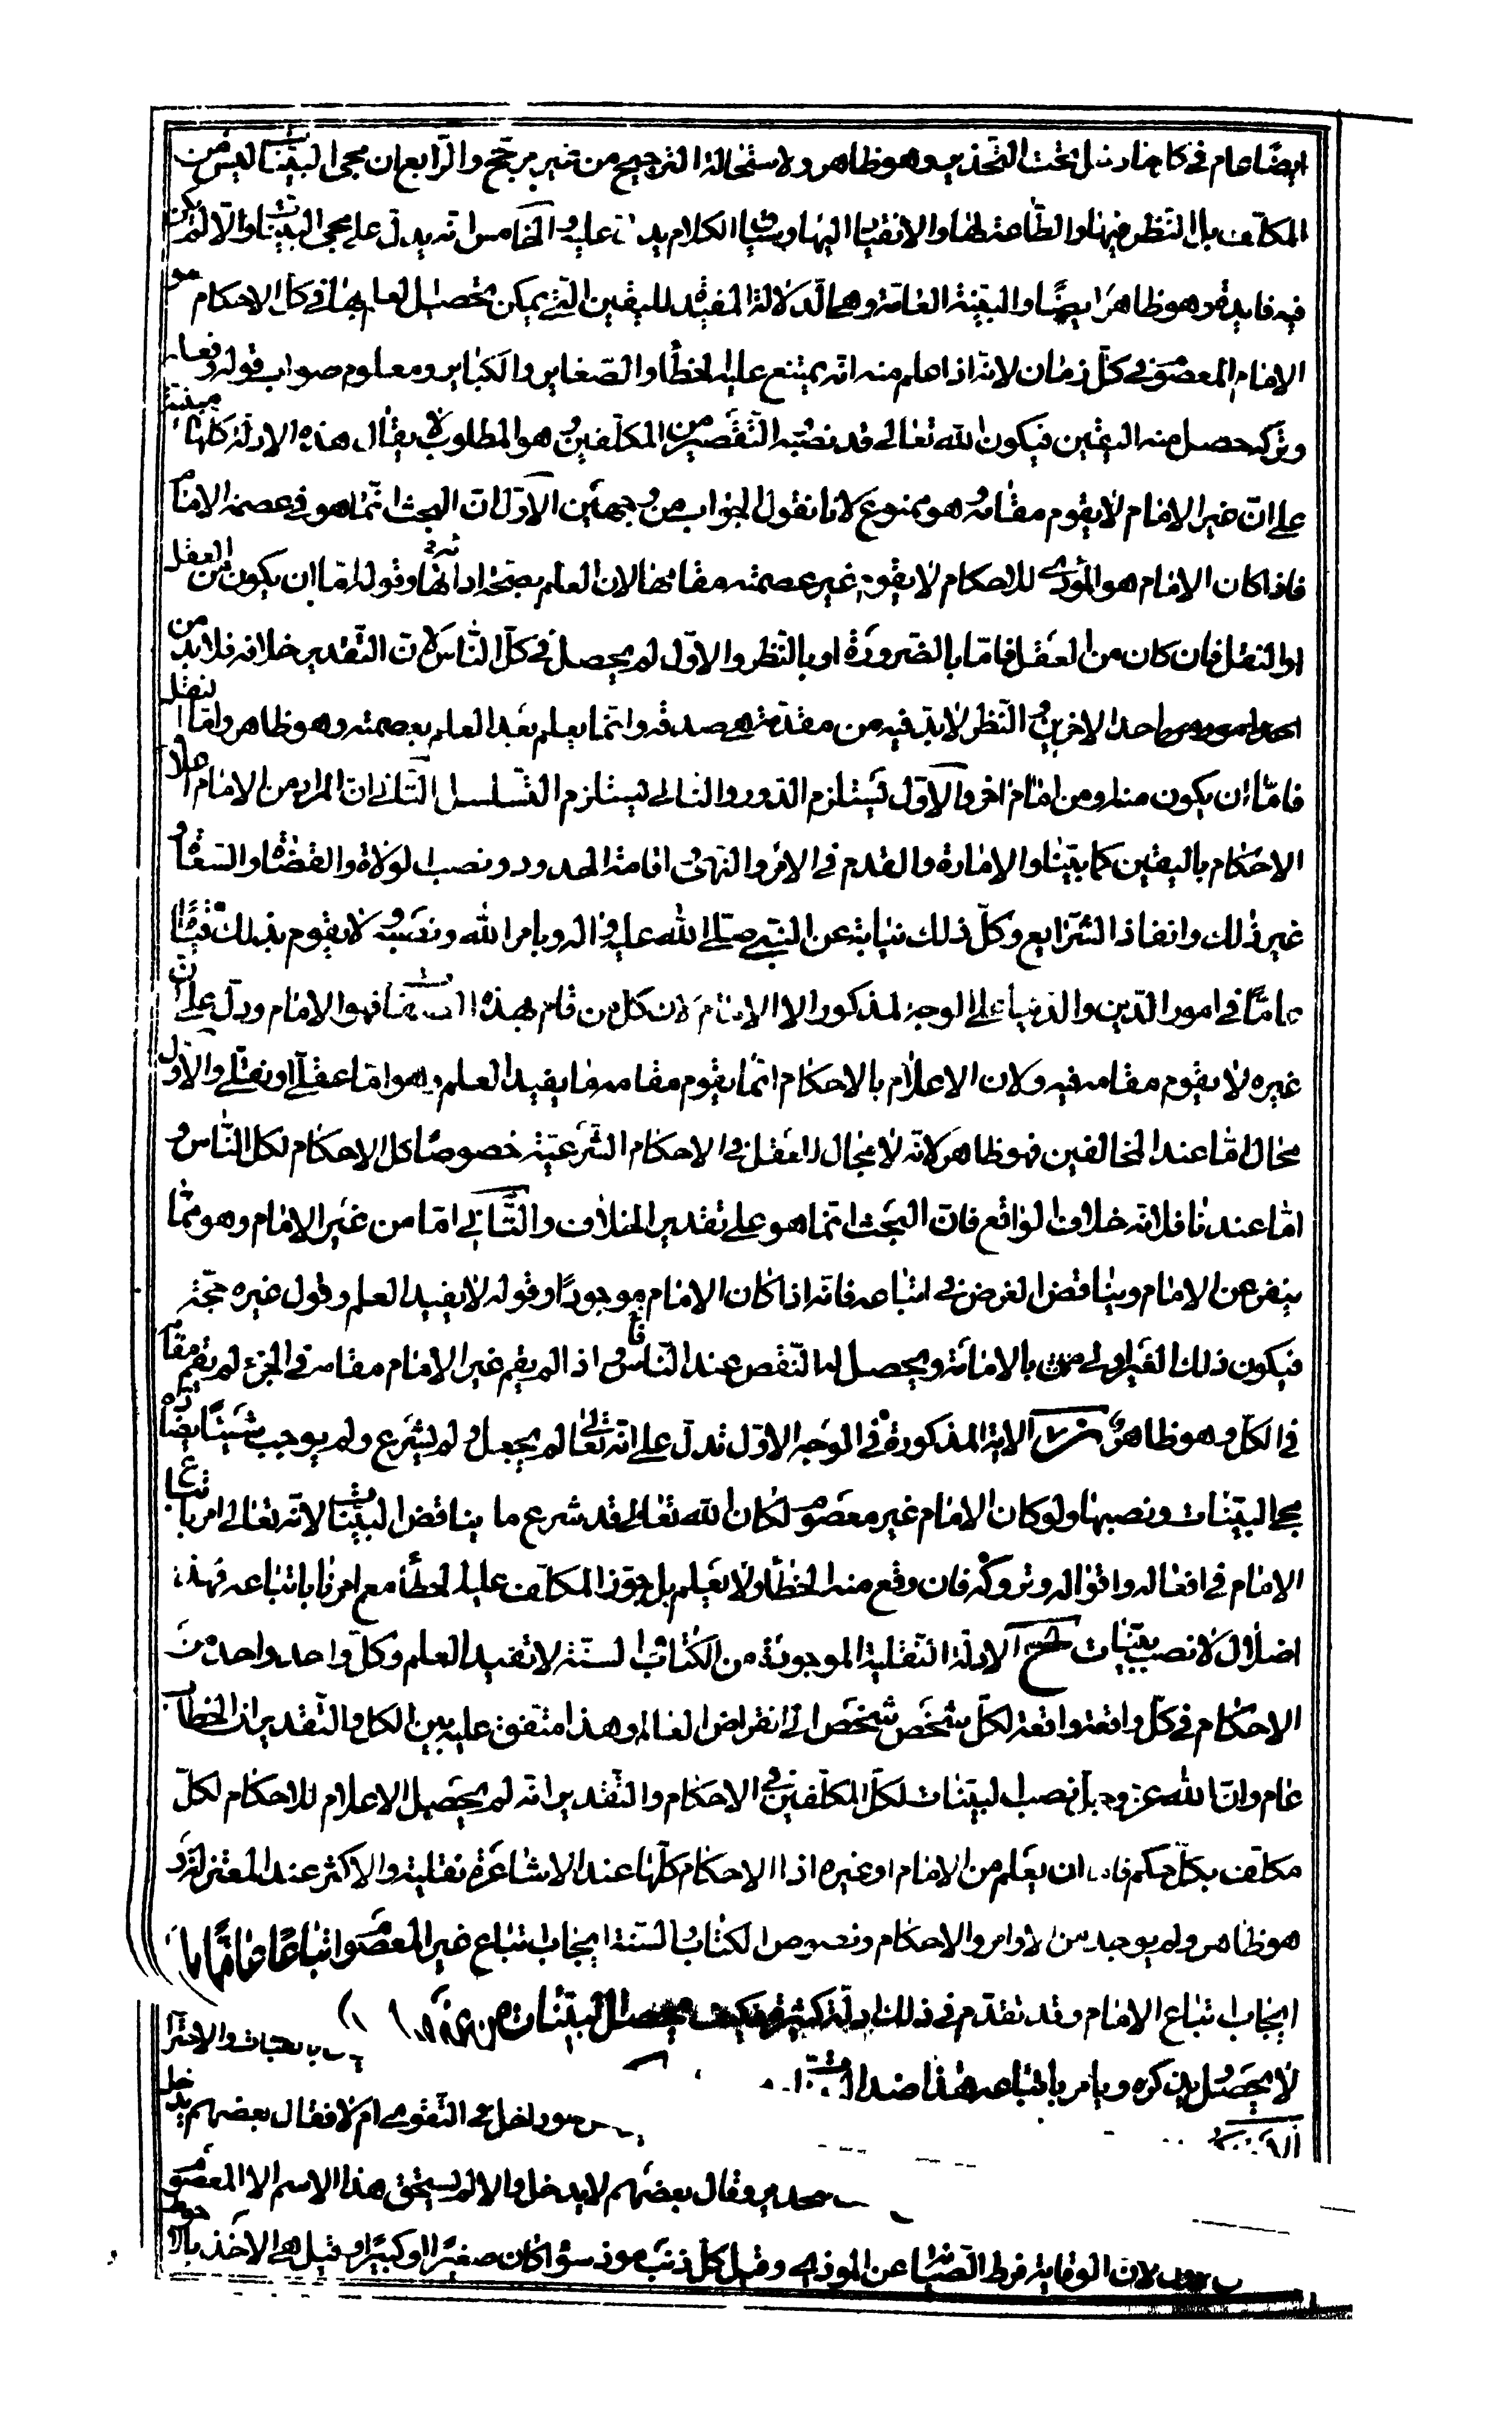 ايضا عام في كل حادث تحت التحذير وهو ظاهر ولاستحالة الترجيح من غير مرجح والرابع ان مجئ البينات ليس من
المكلف بل النظر فيها والطاعة لها والانقياد اليها وسياق الكلام يدل عليه والخامس انه يدل على مجئ البينات والا لم يكن
فيه فايدة وهو ظاهر ايضا والبينة العامة وهي الدلالة المفيدة لليقين التي يمكن تحصيل العلم بها في كل الاحكام هو
الامام المعصوم في كل زمان لانه اذا علم منه انه يمتنع عليه الخطأ والصغاير والكباير ومعلوم صواب قوله وفعله
وتركه حصل منه اليقين فيكون الله تعالى قد نصبه التقصير من المكلفين وهو المطلوب لا يقال هذه الادلة كلها مبنية
على ان غير الامام لا يقوم مقامه وهو ممنوع لانا نقول الجواب من وجهين الاول ان البحث انما هو في عصمة الامام
فاذا كان الامام هو المؤدي للاحكام لا يقوم غير عصمته مقامها لان العلم بصحة ادائها وقوله اما ان يكون من العقل
او النقل فان كان من العقل فاما بالضرورة او بالنظر والاول لم يحصل في كل الناس لان التقدير خلافه فلا بد من
احد الاخرين والنظر لا بد فيه من مقدمة هي صدقه وانما يعلم بعد العلم بعصمته وهو ظاهر واما النقل
فاما ان يكون منه او من امام اخر والاول يستلزم الدور والثاني يستلزم التسلسل الثاني ان المراد من الامام اعلام
الاحكام باليقين كما بينا والامارة والقدم في الامر والنهي واقامة الحدود ونصب الولاة والقضاة والسعاة و
غير ذلك وانفاذ الشرايع وكل ذلك نيابة عن النبي صلى الله عليه واله وبامر الله ونصبه ولا يقوم بذلك قياما
عاما في امور الدين والدنيا على الوجه المذكور الا الامام لان كل من قام بهذه الصفات فهو الامام ودل على ان
غيره لا يقوم مقامه فيه ولان الاعلام بالاحكام انما يقوم مقامه ما يفيد العلم وهو اما عقلي او نقلي والاول
محال اما عند المخالفين فهو ظاهر لانه لا مجال للعقل في الاحكام الشرعية خصوصا كل الاحكام لكل الناس و
اما عندنا فلانه خلاف الواقع فان البحث انما هو على تقدير الخلاف والثاني اما من غير الامام وهو مما
ينفر عن الامام ويناقض الغرض في اتباعه فانه اذا كان الامام موجودا وقوله لا يفيد العلم وقول غيره حجة
فيكون ذلك الغير اولى منه بالامامة ويحصل له النقص عند الناس واذا لم يقم غير الامام مقامه في الجزء لم يقم مقامه
في الكل وهو ظاهر الاية المذكورة في الوجه الاول تدل على انه تعالى لم يجعل ولم يشرع ولم يوجب شيئا يضاد
مجئ البينات ونصبها ولو كان الامام غير معصوم لكان الله تعالى قد شرع ما يناقض البينات لانه تعالى امر باتباع
الامام في افعاله واقواله وتروكه فان وقع منه الخطأ ولا يعلم بل جوز المكلف عليه الخطأ مع امرنا باتباعه فهذا
اضلال لا نصب بينات الادلة النقلية الموجودة من الكتاب والسنة لا تفيد العلم وكل واحد واحد من
الاحكام في كل واقعة واقعة لكل شخص شخص الى انقراض العالم وهذا متفق عليه بين الكل والتقدير ان الخطاب
عام وان الله عز وجل نصب البينات لكل المكلفين في الاحكام والتقدير انه لم يحصل الاعلام للاحكام لكل
مكلف بكل حكم ان يعلم من الامام او غيره اذ الاحكام كلها عند الاشاعرة نقلية والاكثر عند المعتزلة و
هو ظاهر ولم يوجد من الاوامر والاحكام ونصوص الكتاب والسنة ايجاب اتباع غير المعصوم اتباعا عاما
ايجاب اتباع الامام وقد تقدم في ذلك ادلة كثيرة فكيف يحصل البينات
لا يحصل بل يذكره ويامر باتباعه هذا ضد
داخل في التقوى ام لا فقال بعضهم يدخل
وقال بعضهم لا يدخل والا لم يستحق هذا الاسم الا المعصوم
لان الوقاية فرط الصيانة عن الموذي وقيل كل ذنب موذ سواء كان صغيرا او كبيرا وقيل هي الاخذ بالاحوط